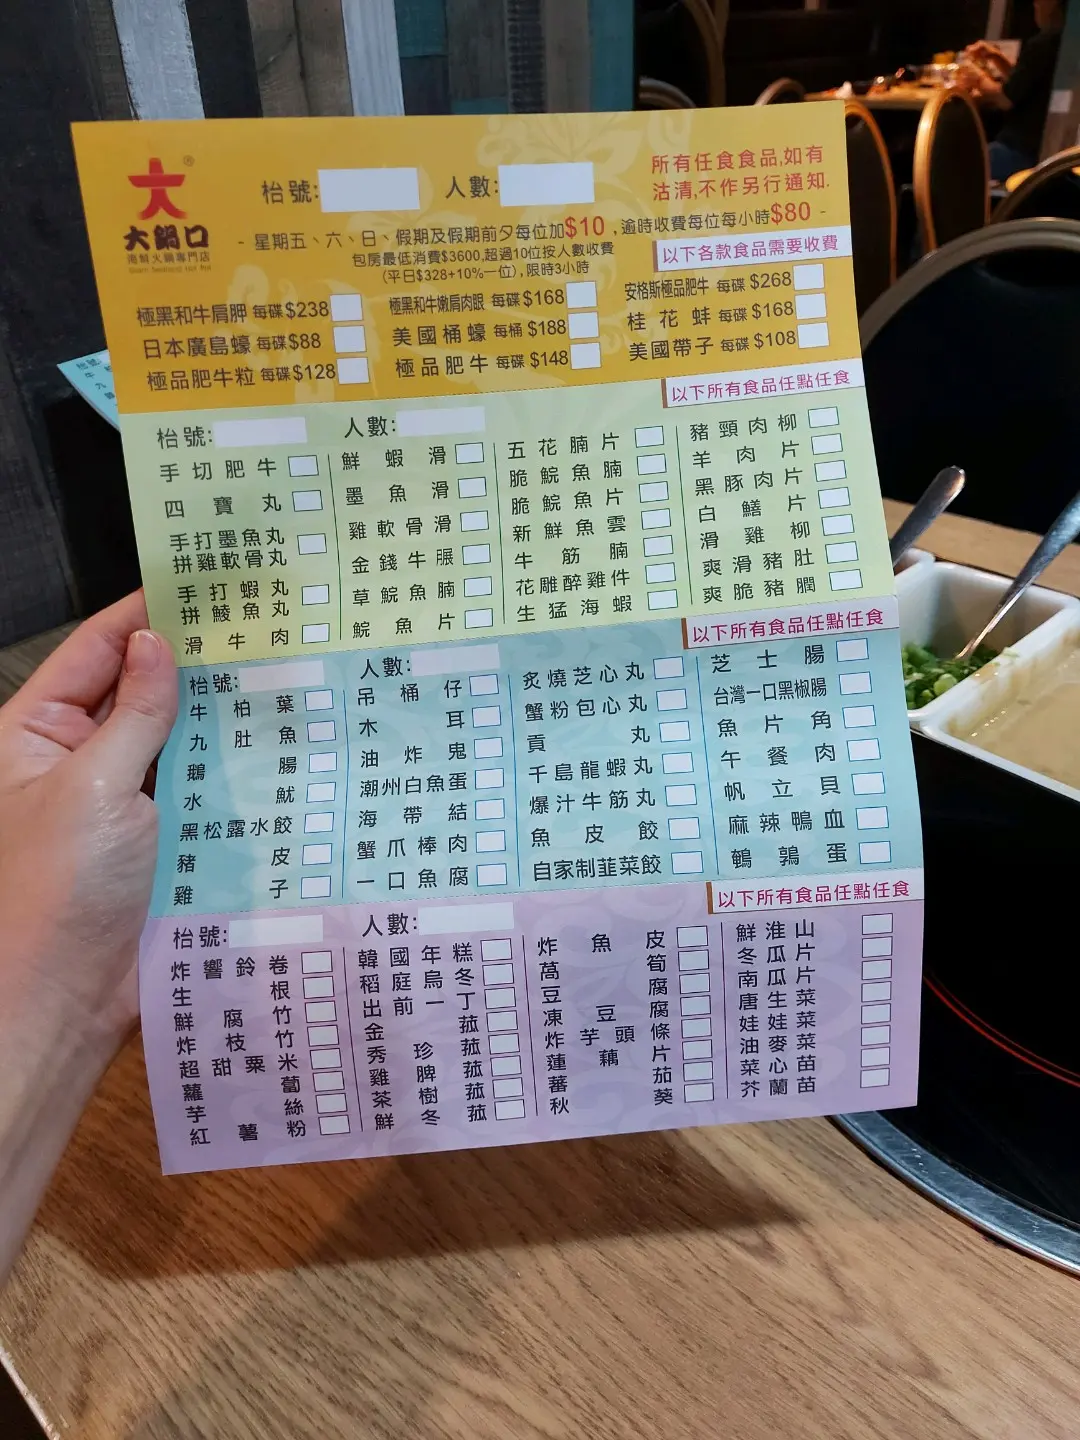 大鍋口
港鮮火鍋專門店
枱號:
人數:
所有任食食品,如有
沽清,不作另行通知.
- 星期五、六、日、假期及假期前夕每位加$10,逾時收費每位每小時$80 -
包房最低消費$3600,超過10位按人數收費
(平日$328+10%一位),限時3小時
以下各款食品需要收費
極黑和牛肩胛 每碟$238
極黑和牛嫩肩肉眼 每碟$168
安格斯極品肥牛 每碟$268
日本廣島蠔 每碟$88
美國桶蠔 每桶$188
桂花蚌 每碟$168
極品肥牛粒 每碟$128
極品肥牛 每碟$148
美國帶子 每碟$108
以下所有食品任點任食
枱號:
人數:
手切肥牛
四寶丸
手打墨魚丸
拼雞軟骨丸
手打蝦丸
拼鯪魚丸
滑牛肉
鮮蝦滑
墨魚滑
雞軟骨滑
金錢牛𦟌
草鯇魚腩
鯇魚片
五花腩片
脆鯇魚腩
脆鯇魚片
新鮮魚雲
牛筋腩
花雕醉雞件
生猛海蝦
豬頸肉柳
羊肉片
黑豚肉片
白鱔片
滑雞柳
爽滑豬肚
爽脆豬膶
以下所有食品任點任食
枱號:
人數:
牛柏葉
九肚魚
鵝腸
水魷
黑松露水餃
豬皮
雞子
吊桶仔
木耳
油炸鬼
潮州白魚蛋
海帶結
蟹爪棒肉
一口魚腐
炙燒芝心丸
蟹粉包心丸
貢丸
千島龍蝦丸
爆汁牛筋丸
魚皮餃
自家制韮菜餃
芝士腸
台灣一口黑椒腸
魚片角
午餐肉
帆立貝
麻辣鴨血
鵪鶉蛋
以下所有食品任點任食
枱號:
人數:
炸響鈴卷
生根
鮮腐竹
炸枝竹
超甜粟米
蘿蔔
芋絲
紅薯粉
韓國年糕
稻庭烏冬
出前一丁
金菰
秀珍菰
雞脾菰
茶樹菰
鮮冬菰
炸魚皮
萵筍
豆腐
凍豆腐
炸芋頭條
蓮藕片
蕃茄
秋葵
鮮淮山
冬瓜片
南瓜片
唐生菜
娃娃菜
油麥菜
菜心苗
芥蘭苗